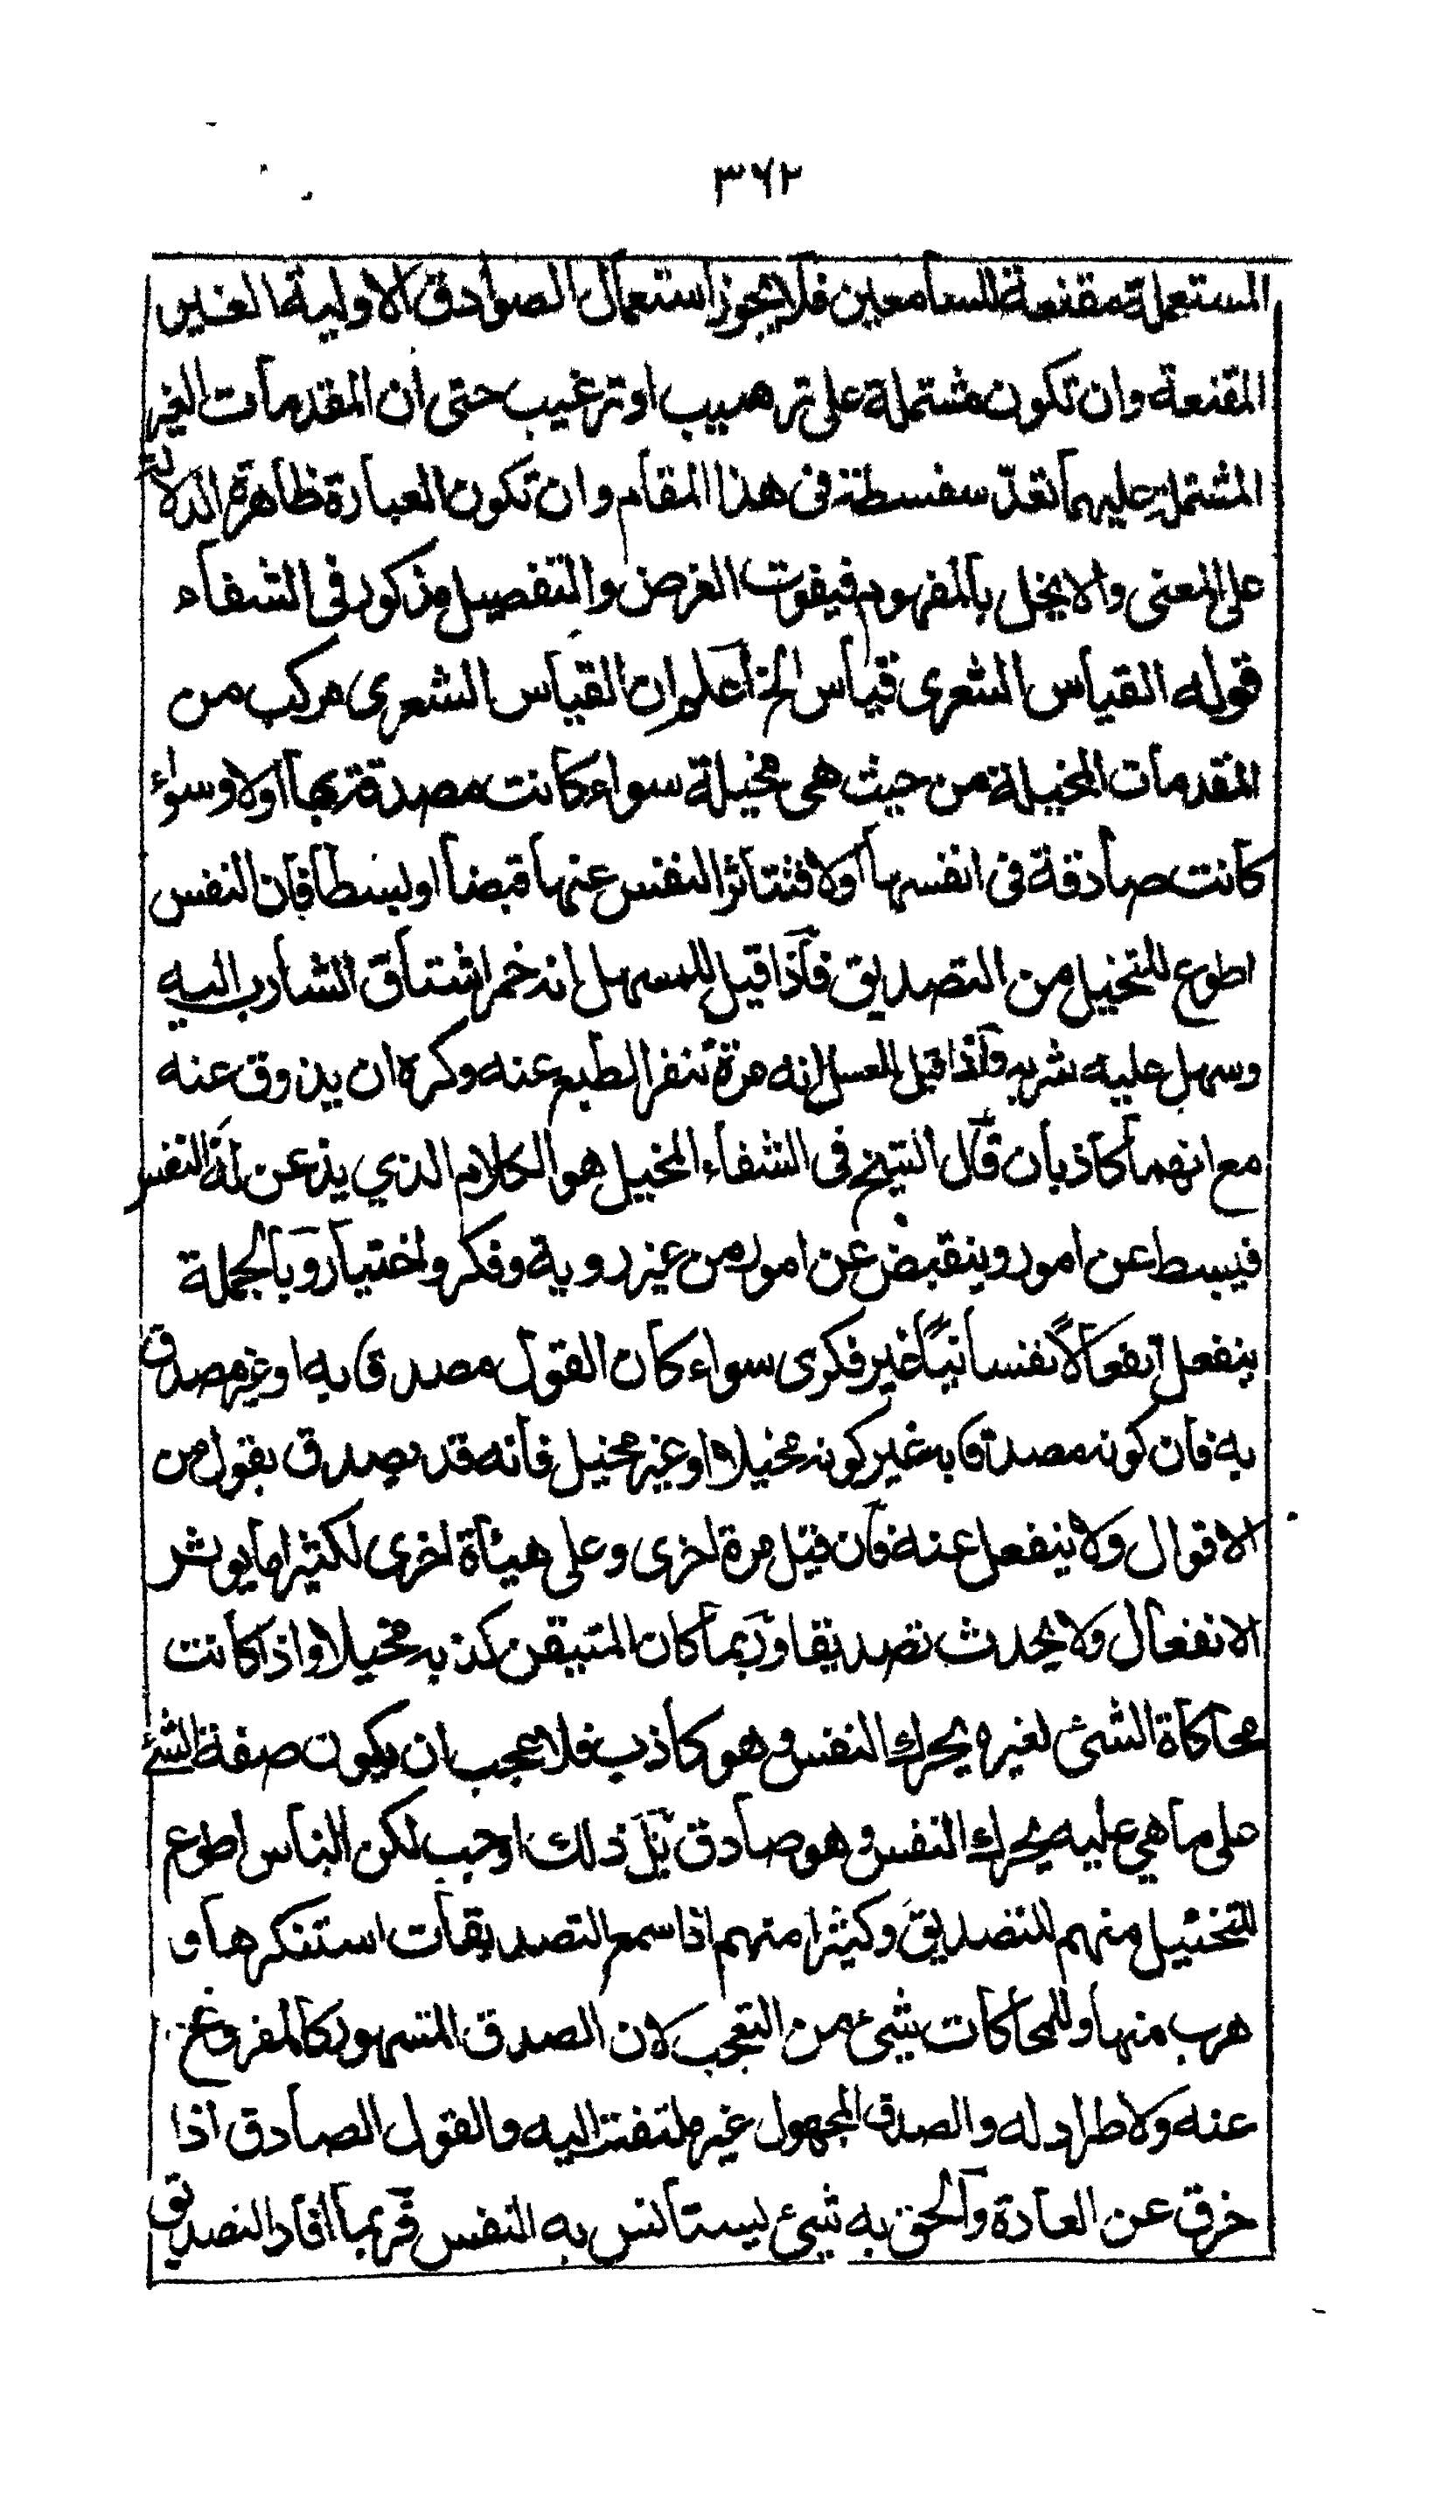 ٣٦٢
المستعملة مقنعة للسامعين فلا يجوز استعمال الصوادق الاولية الغير
المقنعة وان تكون مشتملة على ترهيب او ترغيب حتى ان المقدمات الغير
المشتملة عليهما تعدّ سفسطة فى هذا المقام وان تكون العبارة ظاهرة الدلالة
على المعنى والا يخل بالمفهوم فيفوت الغرض والتفصيل مذكور فى الشفاء
قوله القياس الشعرى قياس الخ اعلم ان القياس الشعرى مركب من
المقدمات المخيلة من حيث هى مخيلة سواء كانت مصدقة بها اولا وسواء
كانت صادقة فى انفسها اولا فتتاثر النفس عنها قبضا او بسطا فان النفس
اطوع للتخيل من التصديق فاذا قيل للمسهل انه خمر اشتاق الشارب اليه
وسهل عليه شربه فاذا قيل للعسل انه مرة تنفر الطبع عنه وكره ان يذوق عنه
مع انهما كاذبان قال الشيخ فى الشفاء المخيل هو الكلام الذي يذعن له النفس
فيبسط عن امور وينقبض عن امور من غير روية وفكر واختيار وبالجملة
ينفعل انفعالاً نفسانياً غير فكرى سواء كان القول مصدقا به او غير مصدق
به فان كونه مصدقا به غير كونه مخيلا او غير مخيل فانه قد يصدق بقول من
الاقوال ولا ينفعل عنه فان قيل مرة اخرى وعلى هيأة اخرى لكثيرا ما يوثر
الانفعال ولا يحدث تصديقا وربما كان المتيقن كذبه مخيلا واذا كانت
محاكاة الشئ لغيره يحرك النفس وهو كاذب فلا عجب ان يكون صفة الشئ
على ما هي عليه يحرك النفس وهو صادق بل ذلك اوجب لكن الناس اطوع
للتخئيل منهم للتصديق وكثيرا منهم اذا سمع التصديقات استنكرها و
هرب منها وللمحاكات شئ من التعجب لان الصدق المشهور كالمفروغ
عنه ولا طراد له والصدق المجهول غير ملتفت اليه والقول الصادق اذا
خرق عن العادة والحق به شئ يستأنس به النفس فربما افاد التصديق